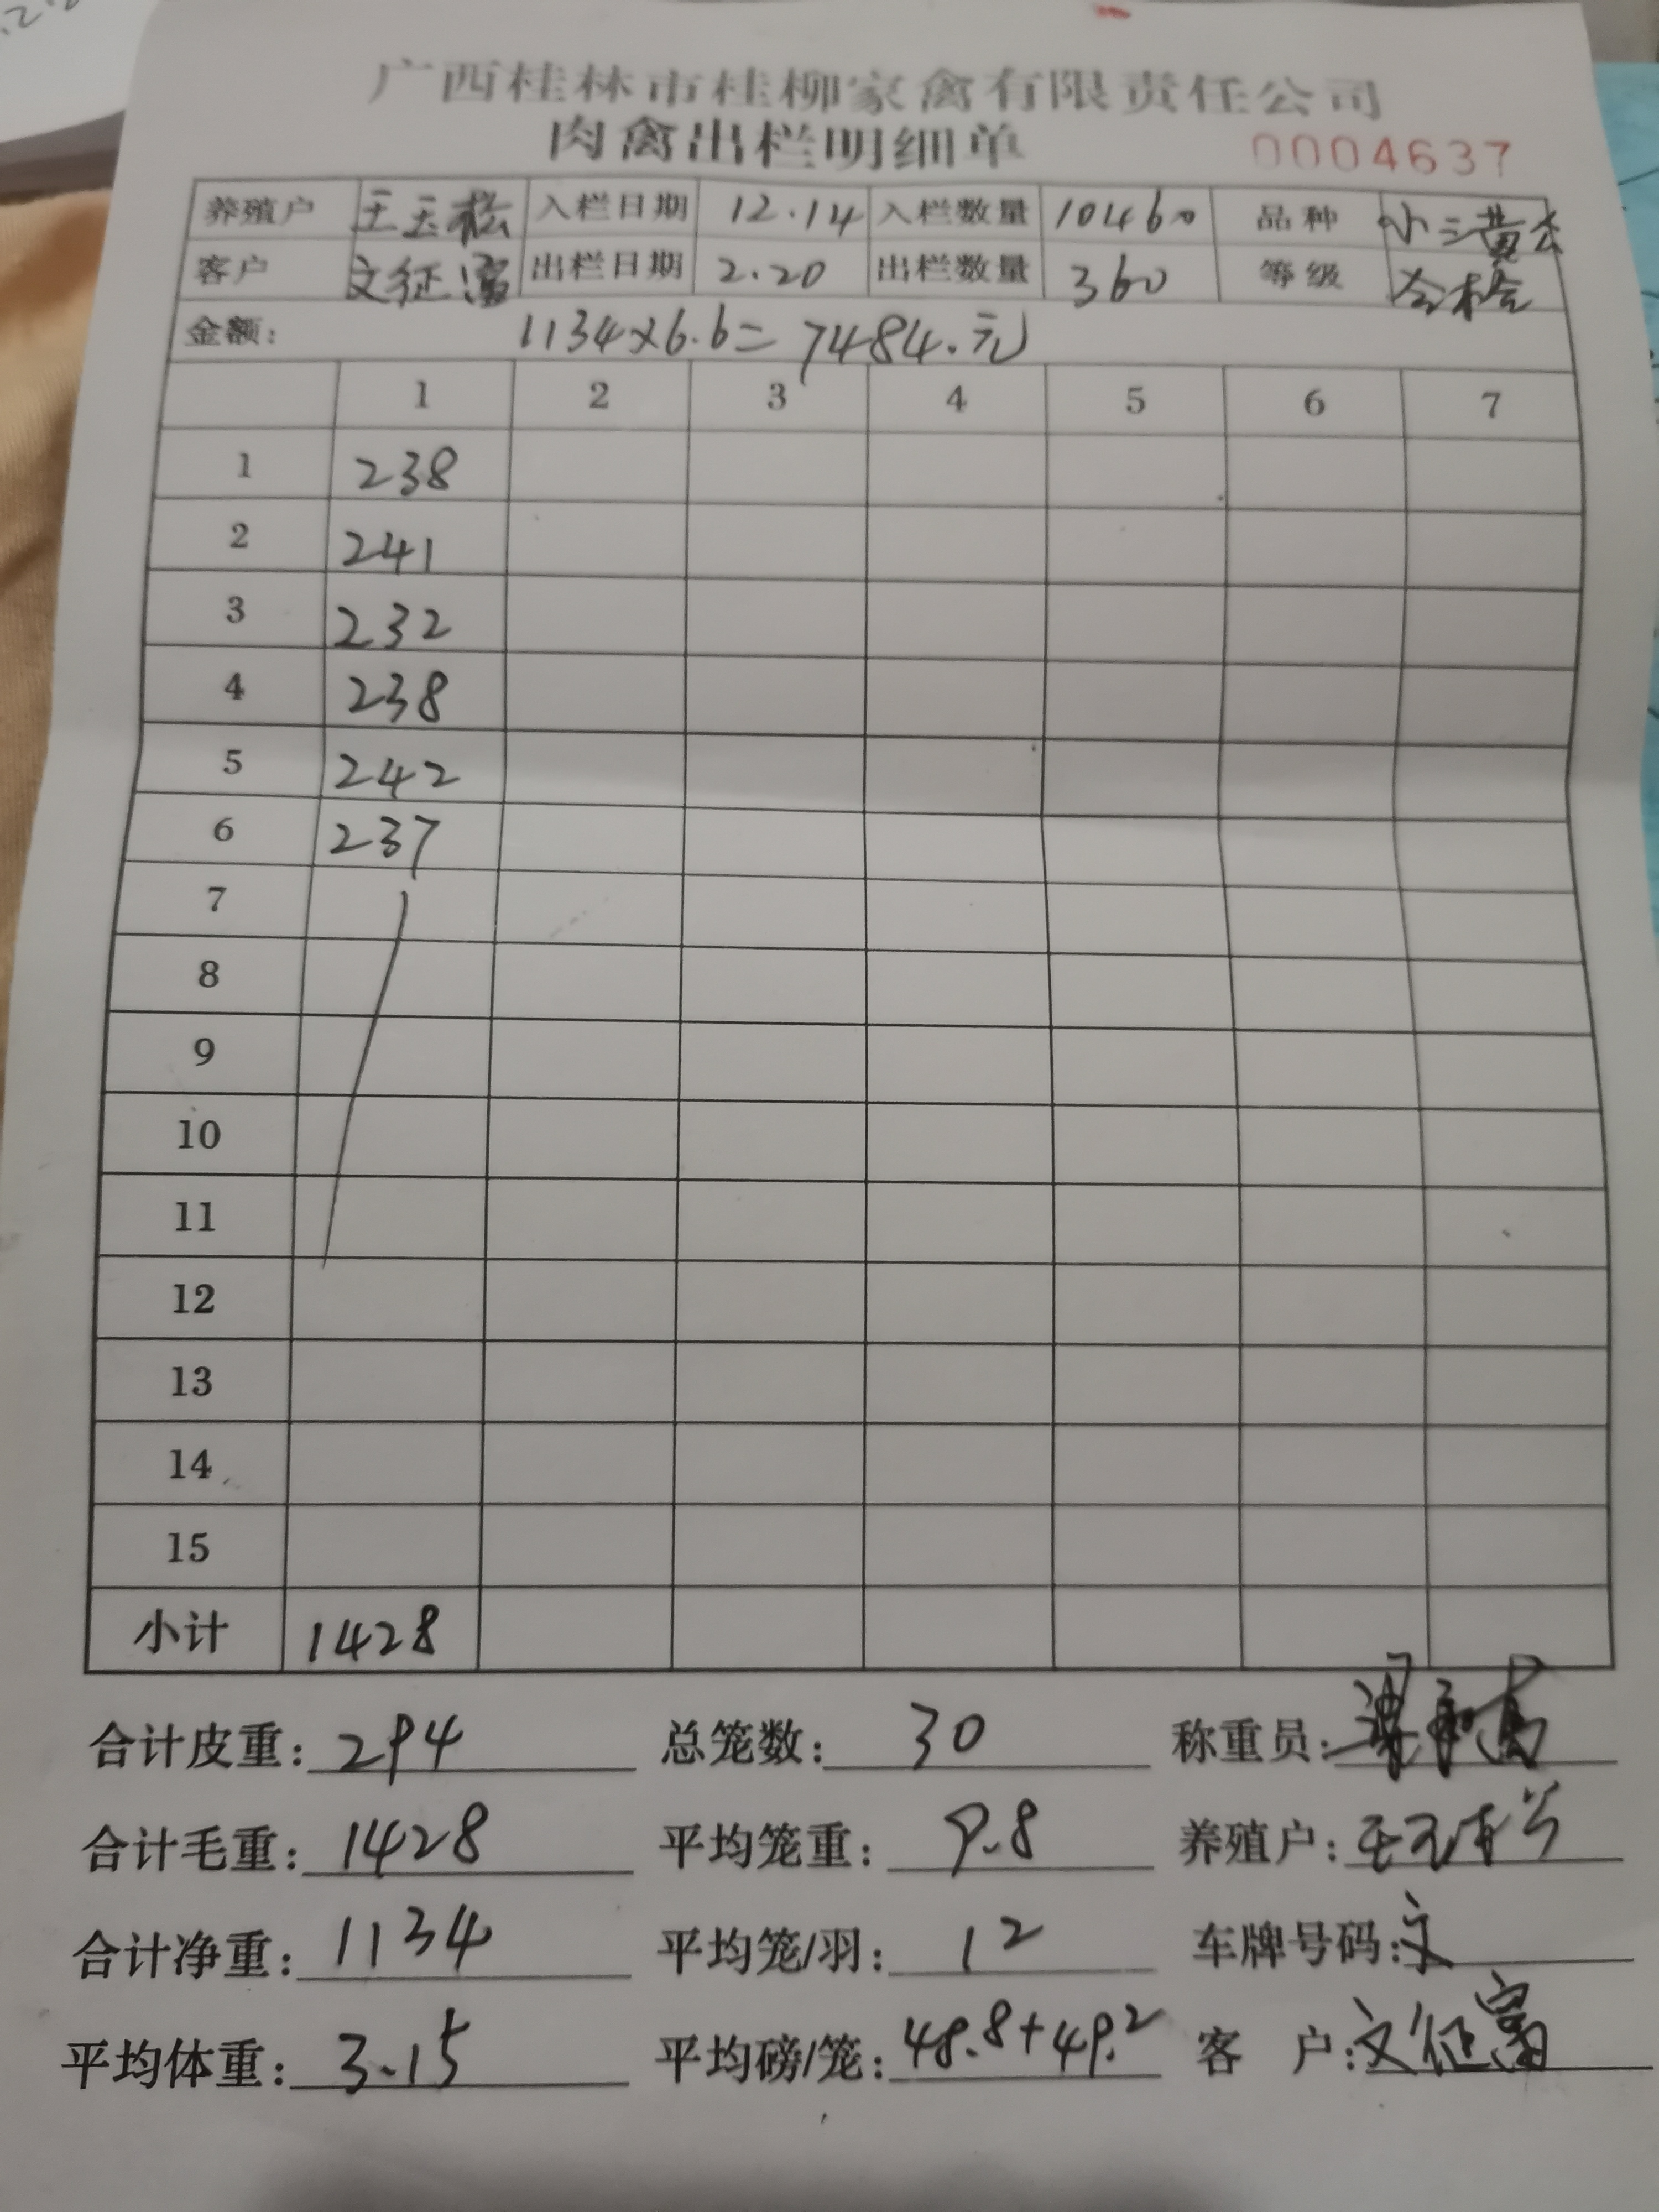 广西桂林市桂柳家禽有限责任公司
肉禽出栏明细单 0004637
养殖户 王玉松 入栏日期 12.14 入栏数量 10460 品种 小三黄公
客户 文征富 出栏日期 2.20 出栏数量 360 等级 合格
金额: 1134×6.6=7484.元
1 2 3 4 5 6 7
1 238
2 241
3 232
4 238
5 242
6 237
7
8
9
10
11
12
13
14
15
小计 1428
合计皮重: 294 总笼数: 30 称重员:
合计毛重: 1428 平均笼重: 9.8 养殖户: 王玉松
合计净重: 1134 平均笼/羽: 12 车牌号码: 文
平均体重: 3.15 平均磅/笼: 48.8+49.2 客 户: 文征富